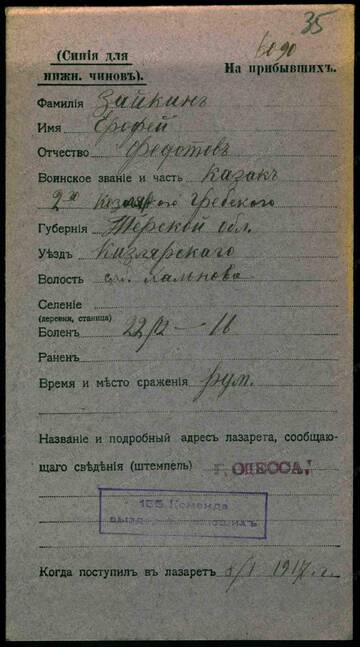 35
(Синія для
нижн. чиновъ).
6090
На прибывшихъ.
Фамилія Зайкинъ
Имя Ерофей
Отчество Федотовъ
Воинское званіе и часть казак
2го Кизляро Гребенского
Губернія Терской обл.
Уѣздъ Кизлярскаго
Волость
Селеніе
(деревня, станица)
Боленъ 22/12 — 16
Раненъ
Время и мѣсто сраженія рум.
Названіе и подробный адресъ лазарета, сообщаю-
щаго свѣдѣнія (штемпель) г. ОДЕССА.
155 Команда
Когда поступилъ въ лазаретъ 5/I 1917 г.